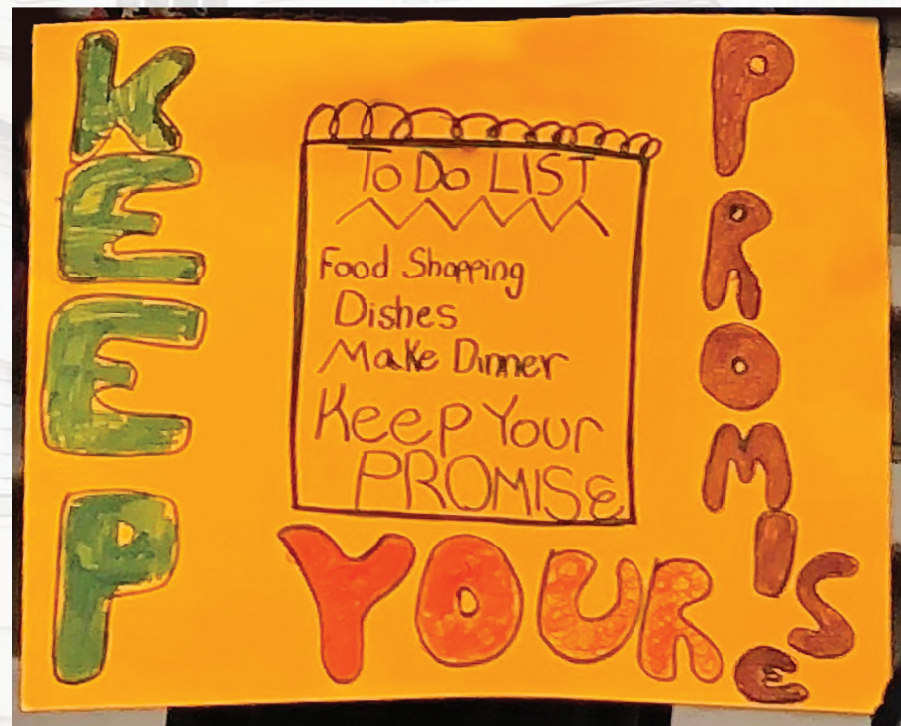 KEEP
To Do LIST
Food Shopping
Dishes
Make Dinner
Keep Your
PROMISE
YOUR
PROMISe